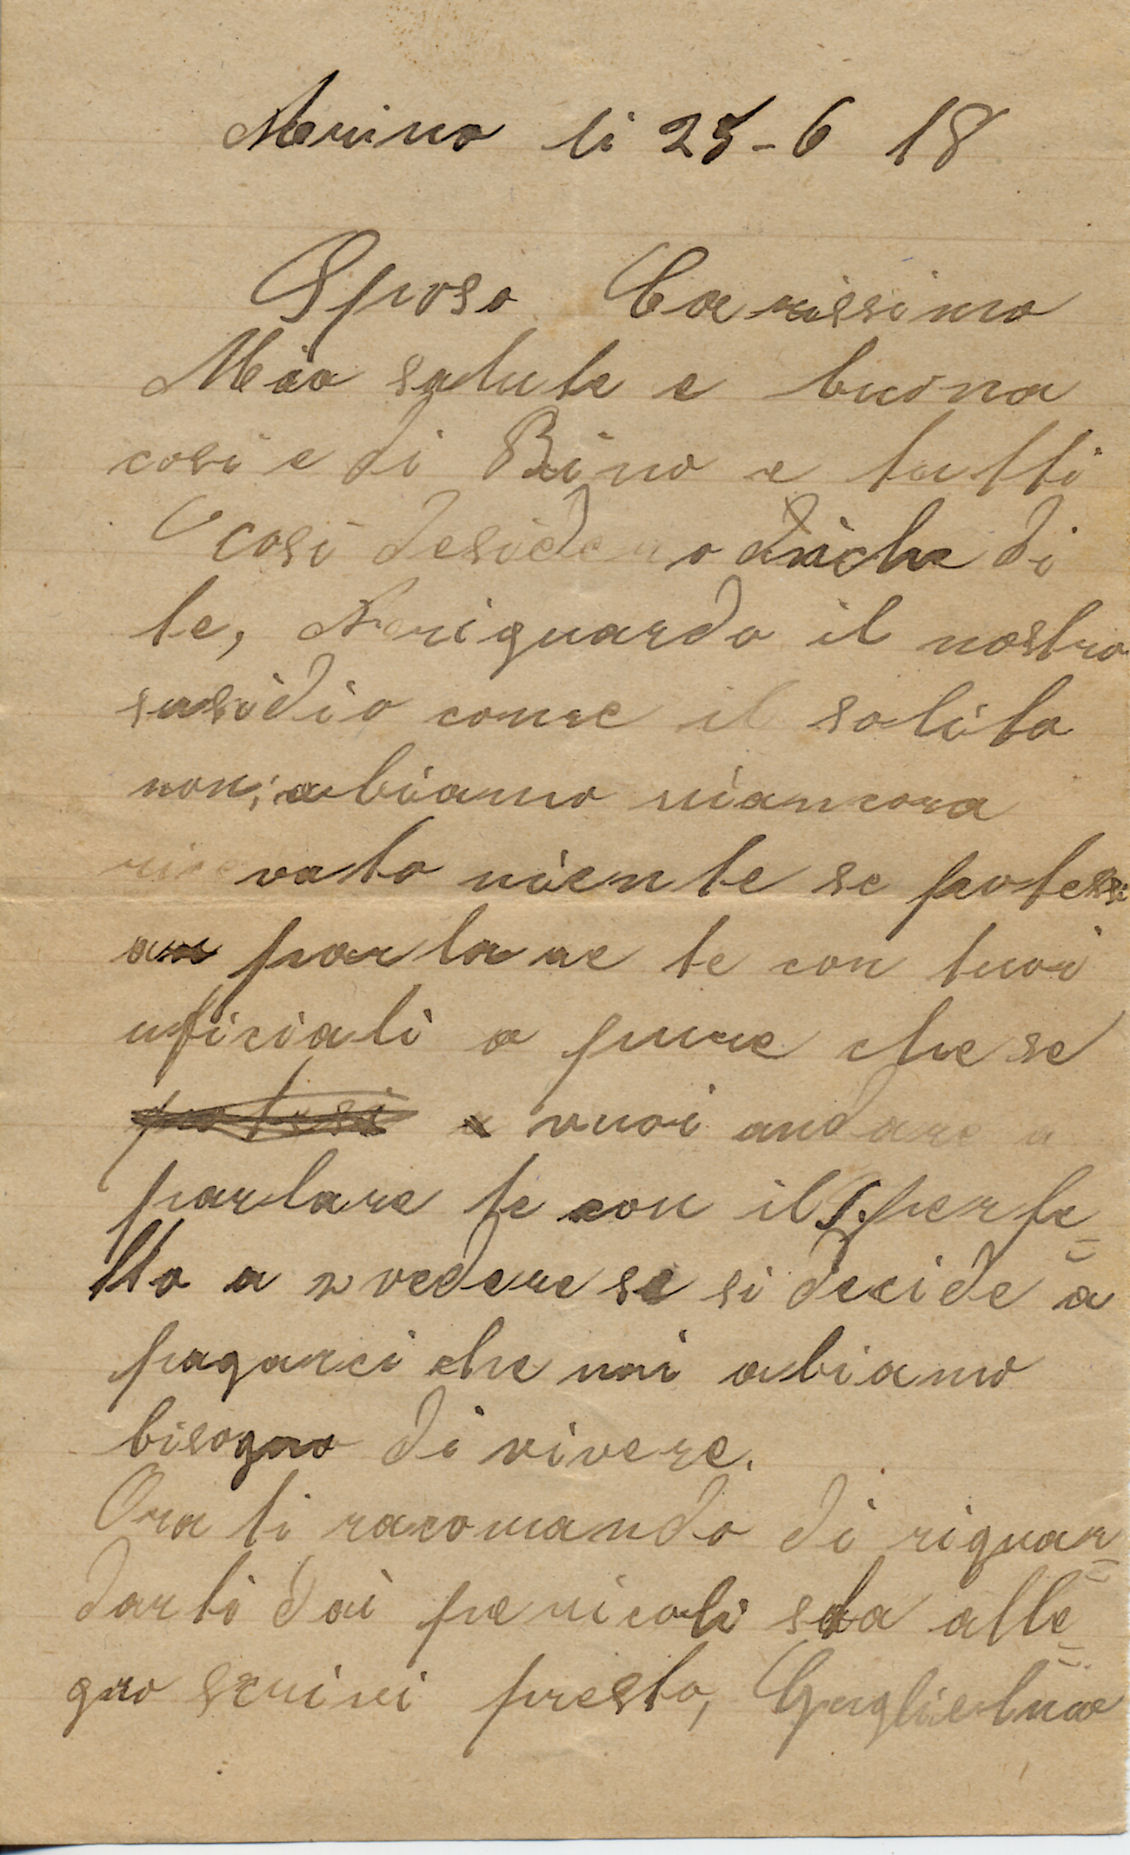 Merino li 25-6 18
Sposo Carissimo
Mio salute e buona
cosi e di Bino e tutti
cosi desidero anche di
te, Neriguardo il nostro
susidio come il solito
non abiamo niancora
ricevuto niente se potessi
parlare te con tuoi
uficiali o pure che se
potesi vuoi andare a
parlare te con il S.perfe=
tto a vedere se si decide a
pagarci che noi abiamo
bisogno di vivere.
Ora ti racomando di riguar=
darti dai pericoli sta alle=
gro scrivi presto,